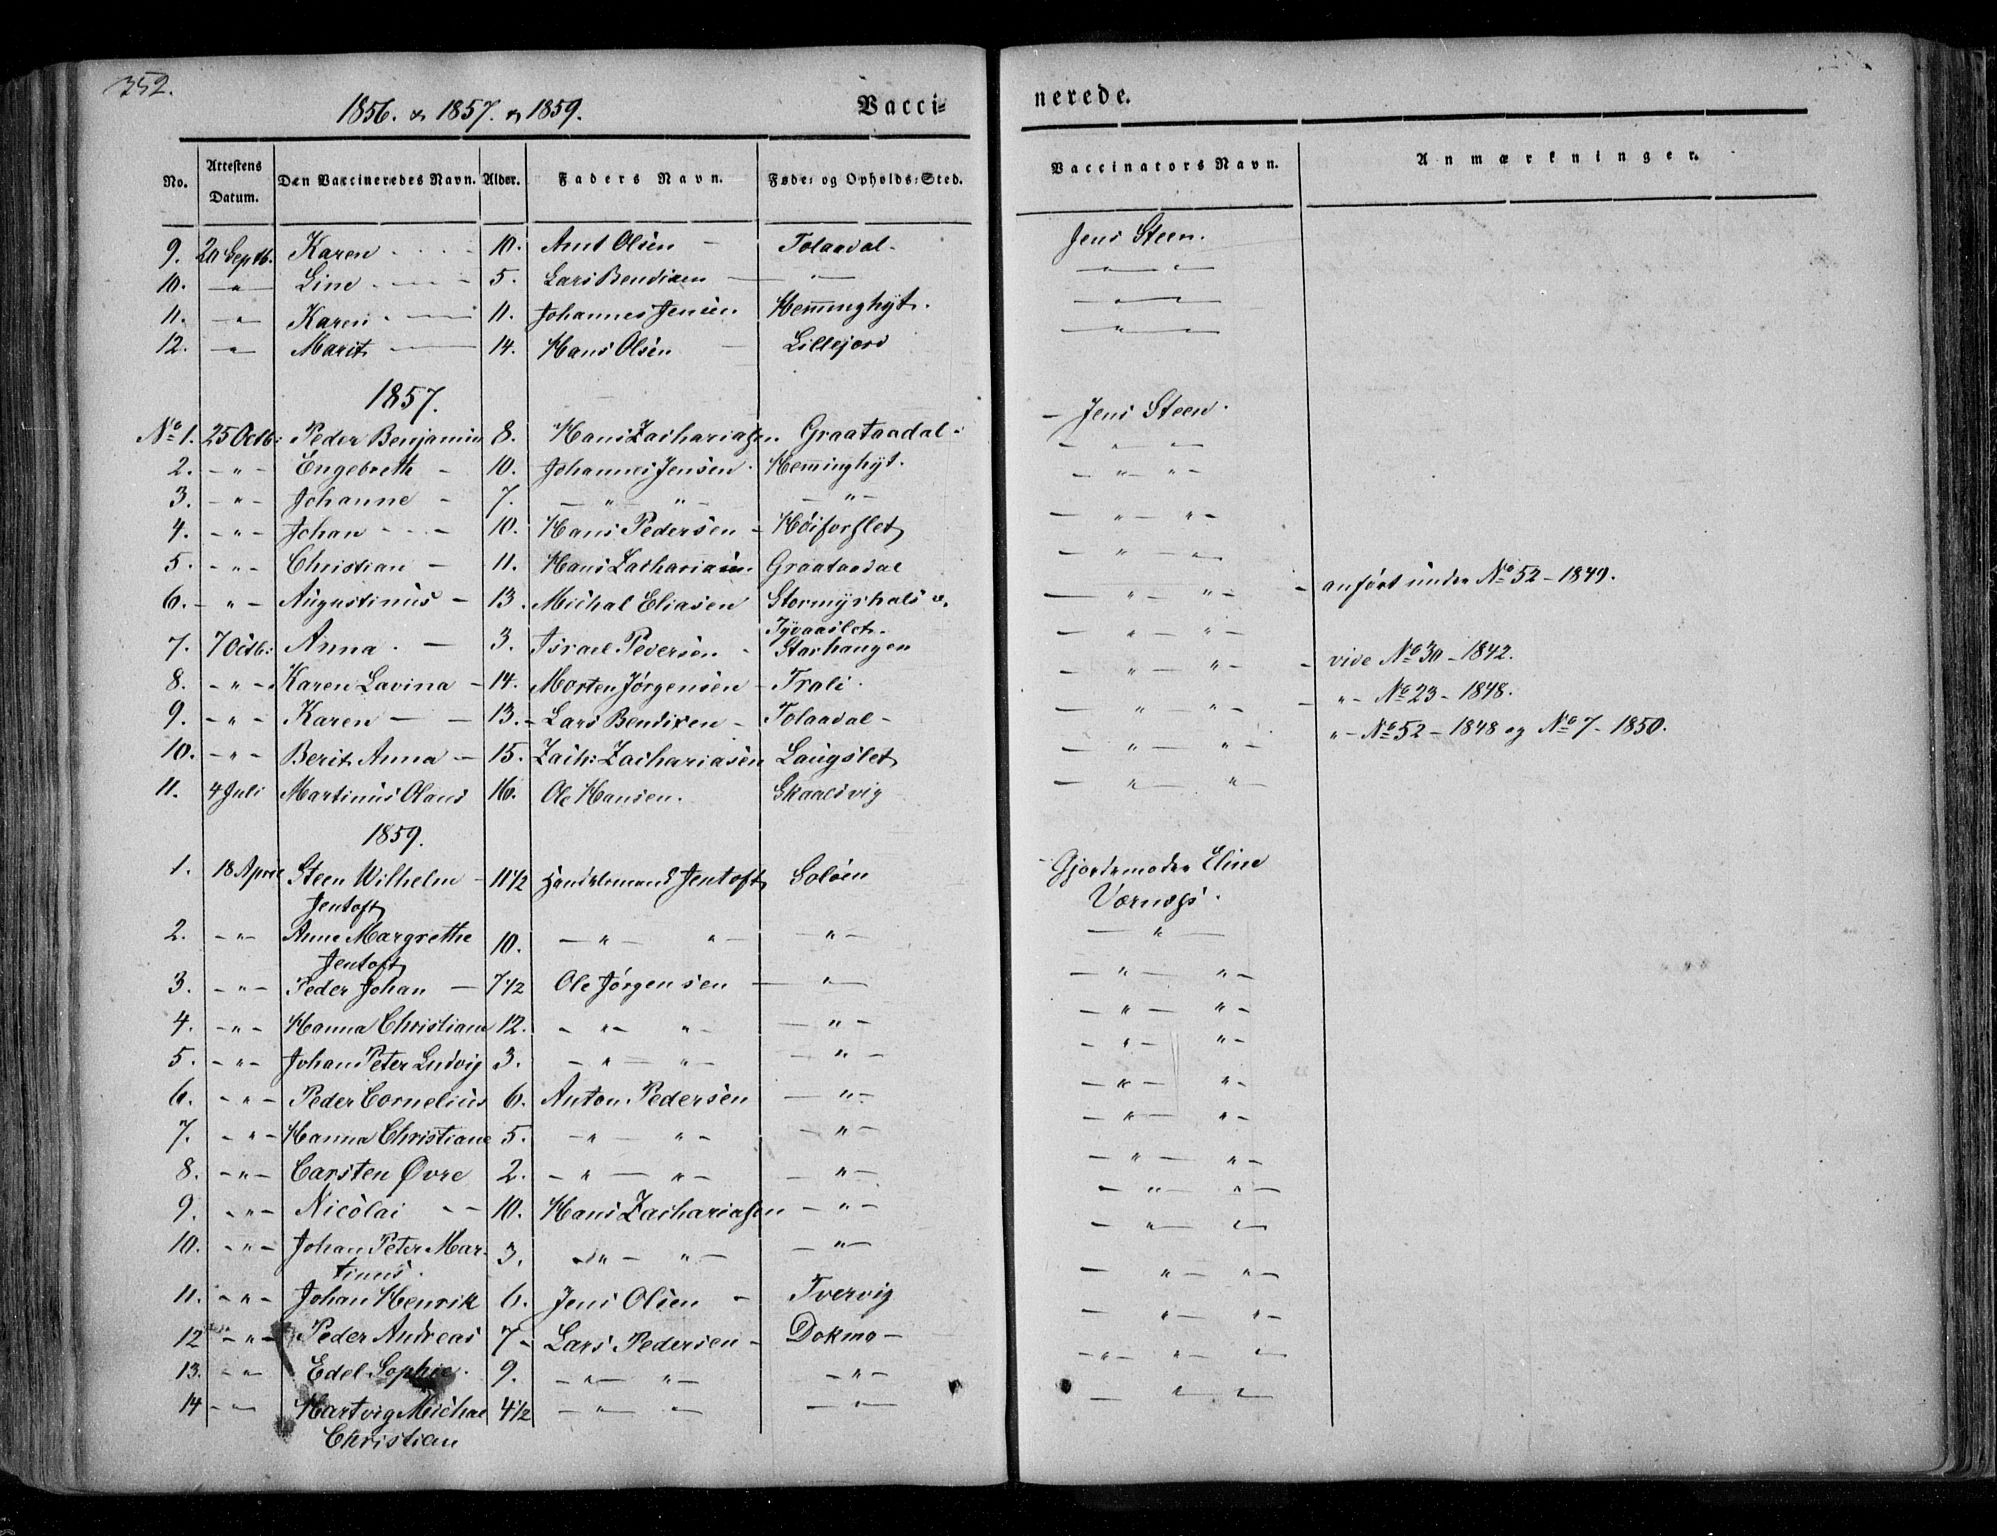 352.
1856. & 1857. & 1859. Vacci- nerede.
No. Attestens Datum. Den Vaccineredes Navn. Alder. Faders Navn. Føde- og Opholds-Sted. Vaccinators Navn. Anmærkninger.
9. 20 Septb. Karen 10. Arnt Olsen - Tolaadal. Jens Steen.
10. - " - Line 5. Lars Bendixen - " - " "
11. - " - Karen 11. Johannes Jensen Hemminghyt. " "
12. - " - Marit 14. Hans Olsen Lillejord " "
1857.
No 1. 25 Octb: Peder Benjamin 8. Hans Zachariasen Graataadal. - Jens Steen.
2. - " - Engebreth - 10. Johannes Jensen. Hemminghyt. " "
3. - " - Johanne - 7. - " " - - " - - " - " -
4. - " - Johan - 10. Hans Pedersen - Høiforslet - " - " -
5. - " - Christian - 11. Hans Zachariasen. Graataadal - " - " -
6. - " - Augustinus - 13. Michal Eliasen Stormyrhals v. - " - " - - anført under No 52 - 1849.
Tyvaaslet.
7. 7 Octb: Anna. - 3. Israel Pedersen - Starhaugen - " - " -
8. - " - Karen Lavina - 14. Morten Jørgensen - Trali. - " - " - - vide No 30 - 1842.
9. - " - Karen - 13. - Lars Bendixen - Tolaadal - - " - " - - " - No 23 - 1848.
10. - " - Berit Anna - 15. Zach: Zachariasen Laugslet - " - " - " - No 52 - 1848 og No 7 - 1850.
11. 4 Juli Martinus Olaus 16. Ole Hansen. Skaalsvig - " - "
1859.
1. 18 April Steen Wilhelm - 11 1/2 Handelsmand Jentoft Soløen - Gjordemoder Eline
Jentoft Værnæs.
2. - " - Anne Margrethe 10. - " - " - - " - - " -
Jentoft
3. - " - Peder Johan - 7 1/2 Ole Jørgensen - " - - " - " -
4. - " - Hanna Christiane 12. - " - " - - " - - " - " -
5. - " - Johan Peter Ludvig 3. - " - " - - " - - " - " -
6. - " - Peder Cornelius 6. Anton Pedersen - " - - " - " -
7. - " - Hanna Christiane 5. - " - " - - " - - " - " -
8. - " - Carsten Øvre 2. - " - " - - " - - " - " -
9. - " - Nicolai - - 10. Hans Zachariasen - " - - " - " -
10. - " - Johan Peter Mar- 3. - " - " - - " - - " - " -
tinus.
11. - " - Johan Henrik 6. Jens Olsen - Tvervig - " - " -
12 - " - Peder Andreas 7 - Lars Pedersen - Dokmo - - " - " -
13. - " - Edel Sophie. 9. - " - " - - " - - " - " -
14 - " - Hartvig Michael 4 1/2 - " - " - - " - - " - " -
Christian